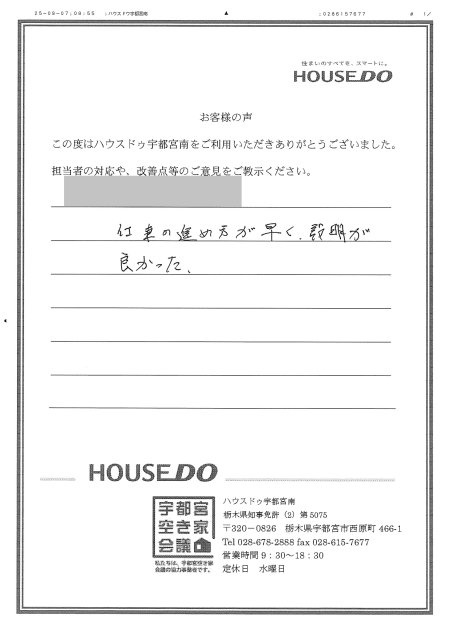 25-09-07;08:55 ;ハウスドウ宇都宮南 ;0286157677 # 1/
住まいのすべてを、スマートに。
HOUSEDO
お客様の声
この度はハウスドゥ宇都宮南をご利用いただきありがとうございました。
担当者の対応や、改善点等のご意見をご教示ください。
仕事の進め方が早く、説明が
良かった、
HOUSEDO
宇都宮
空き家
会議
私たちは、宇都宮空き家
会議の協力事業者です。
ハウスドゥ宇都宮南
栃木県知事免許（2）第5075
〒320－0826 栃木県宇都宮市西原町 466-1
Tel 028-678-2888 fax 028-615-7677
営業時間 9：30～18：30
定休日 水曜日